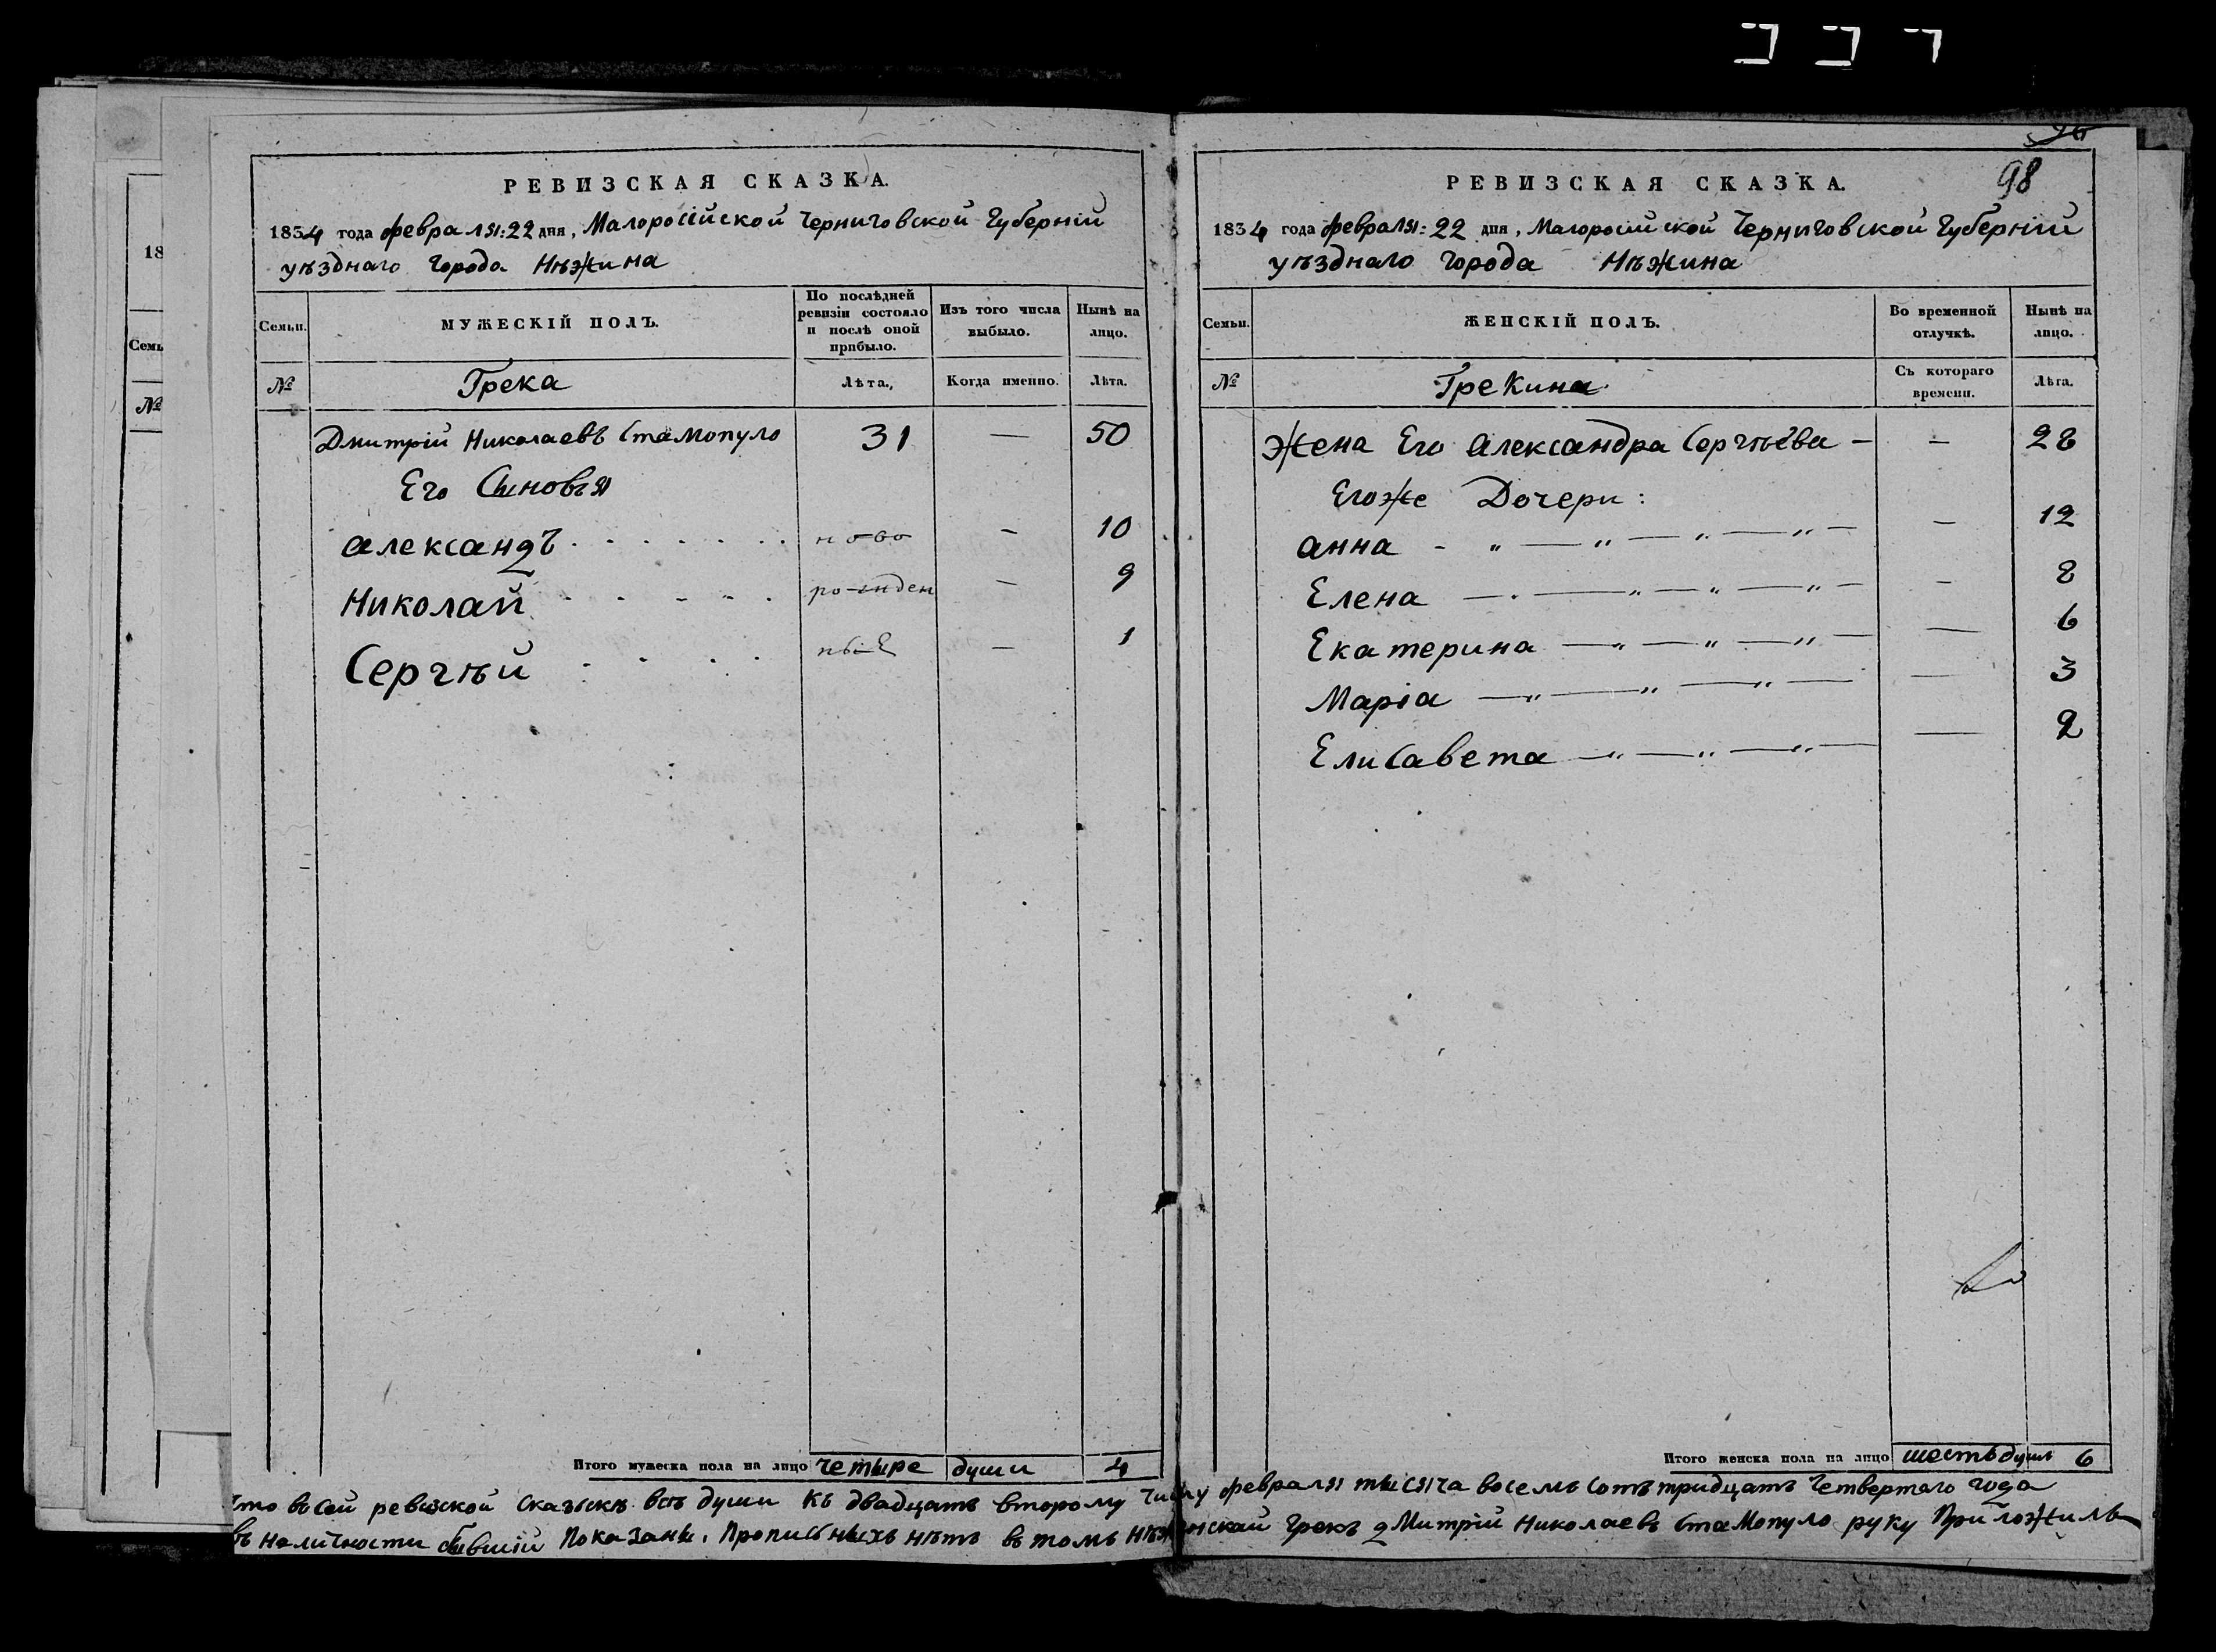 РЕВИЗСКАЯ СКАЗКА.
1834 года февраля: 22 дня, Малоросійской Черниговской Губерній
уѣзднаго Города Нѣжина
Семьи. МУЖЕСКІЙ ПОЛЪ. По послѣдней ревизіи состояло и послѣ оной прибыло. Изъ того числа выбыло. Нынѣ на лицо.
№ Грека Лѣта. Когда именно. Лѣта.
Дмитрій Николаевъ Стамопуло 31 — 50
Его Сыновья
александъ ново — 10
Николай рожден — 9
Сергѣй ные — 1
Итого мужеска пола на лицо четыре души 4
96
98
РЕВИЗСКАЯ СКАЗКА.
1834 года февраля: 22 дня, Малоросійской Черниговской Губерній
уѣзднаго Города Нѣжина
Семьи. ЖЕНСКІЙ ПОЛЪ. Во временной отлучкѣ. Нынѣ на лицо.
№ Грекина Съ котораго времени. Лѣта.
Жена Его Александра Сергѣева — — 28
Егоже Дочери:
анна — 12
Елена — 8
Екатерина — 6
Маріа — 3
Елисавета — 2
Итого женска пола на лицо шесть душъ 6
Что в сей ревизской сказскѣ всѣ души къ двадцать второму Числу февраля тысяча восемь сотъ тридцать Четвертаго года
въ наличности бывшій Показаны. Прописныхъ нѣтъ в томъ Нѣжинскай Грекъ дМитрій Николаевъ стаМопуло руку Приложилъ
18
Семь
№